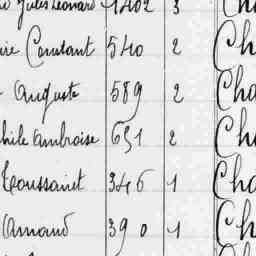 Jules Léonard 1402 3 Cha
ire Constant 540 2 Ch
Auguste 589 2 Cha
phile Ambroise 651 2 Cha
Toussaint 346 1 Cha
Armand 390 1 Ch